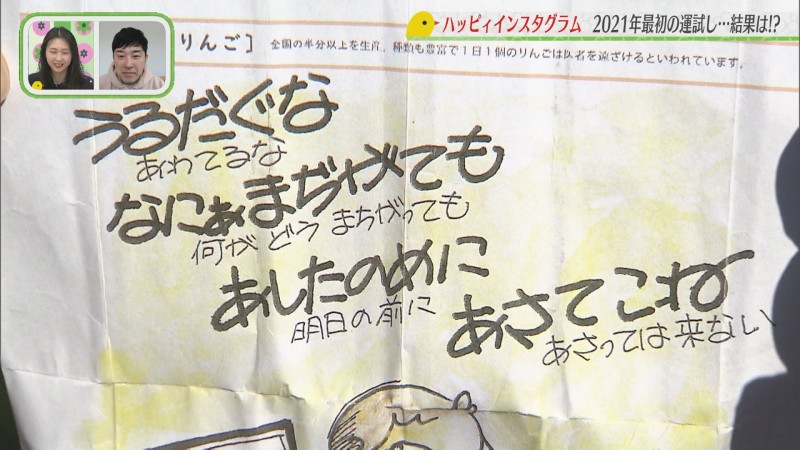 ハッピィインスタグラム 2021年最初の運試し…結果は!?
りんご] 全国の半分以上を生産。種類も豊富で1日1個のりんごは医者を遠ざけるといわれています。
うるだぐな
あわてるな
なにぁまぢがてても
何がどうまちがっても
あしたのめに
明日の前に
あさてこねぐ
あさっては来ない